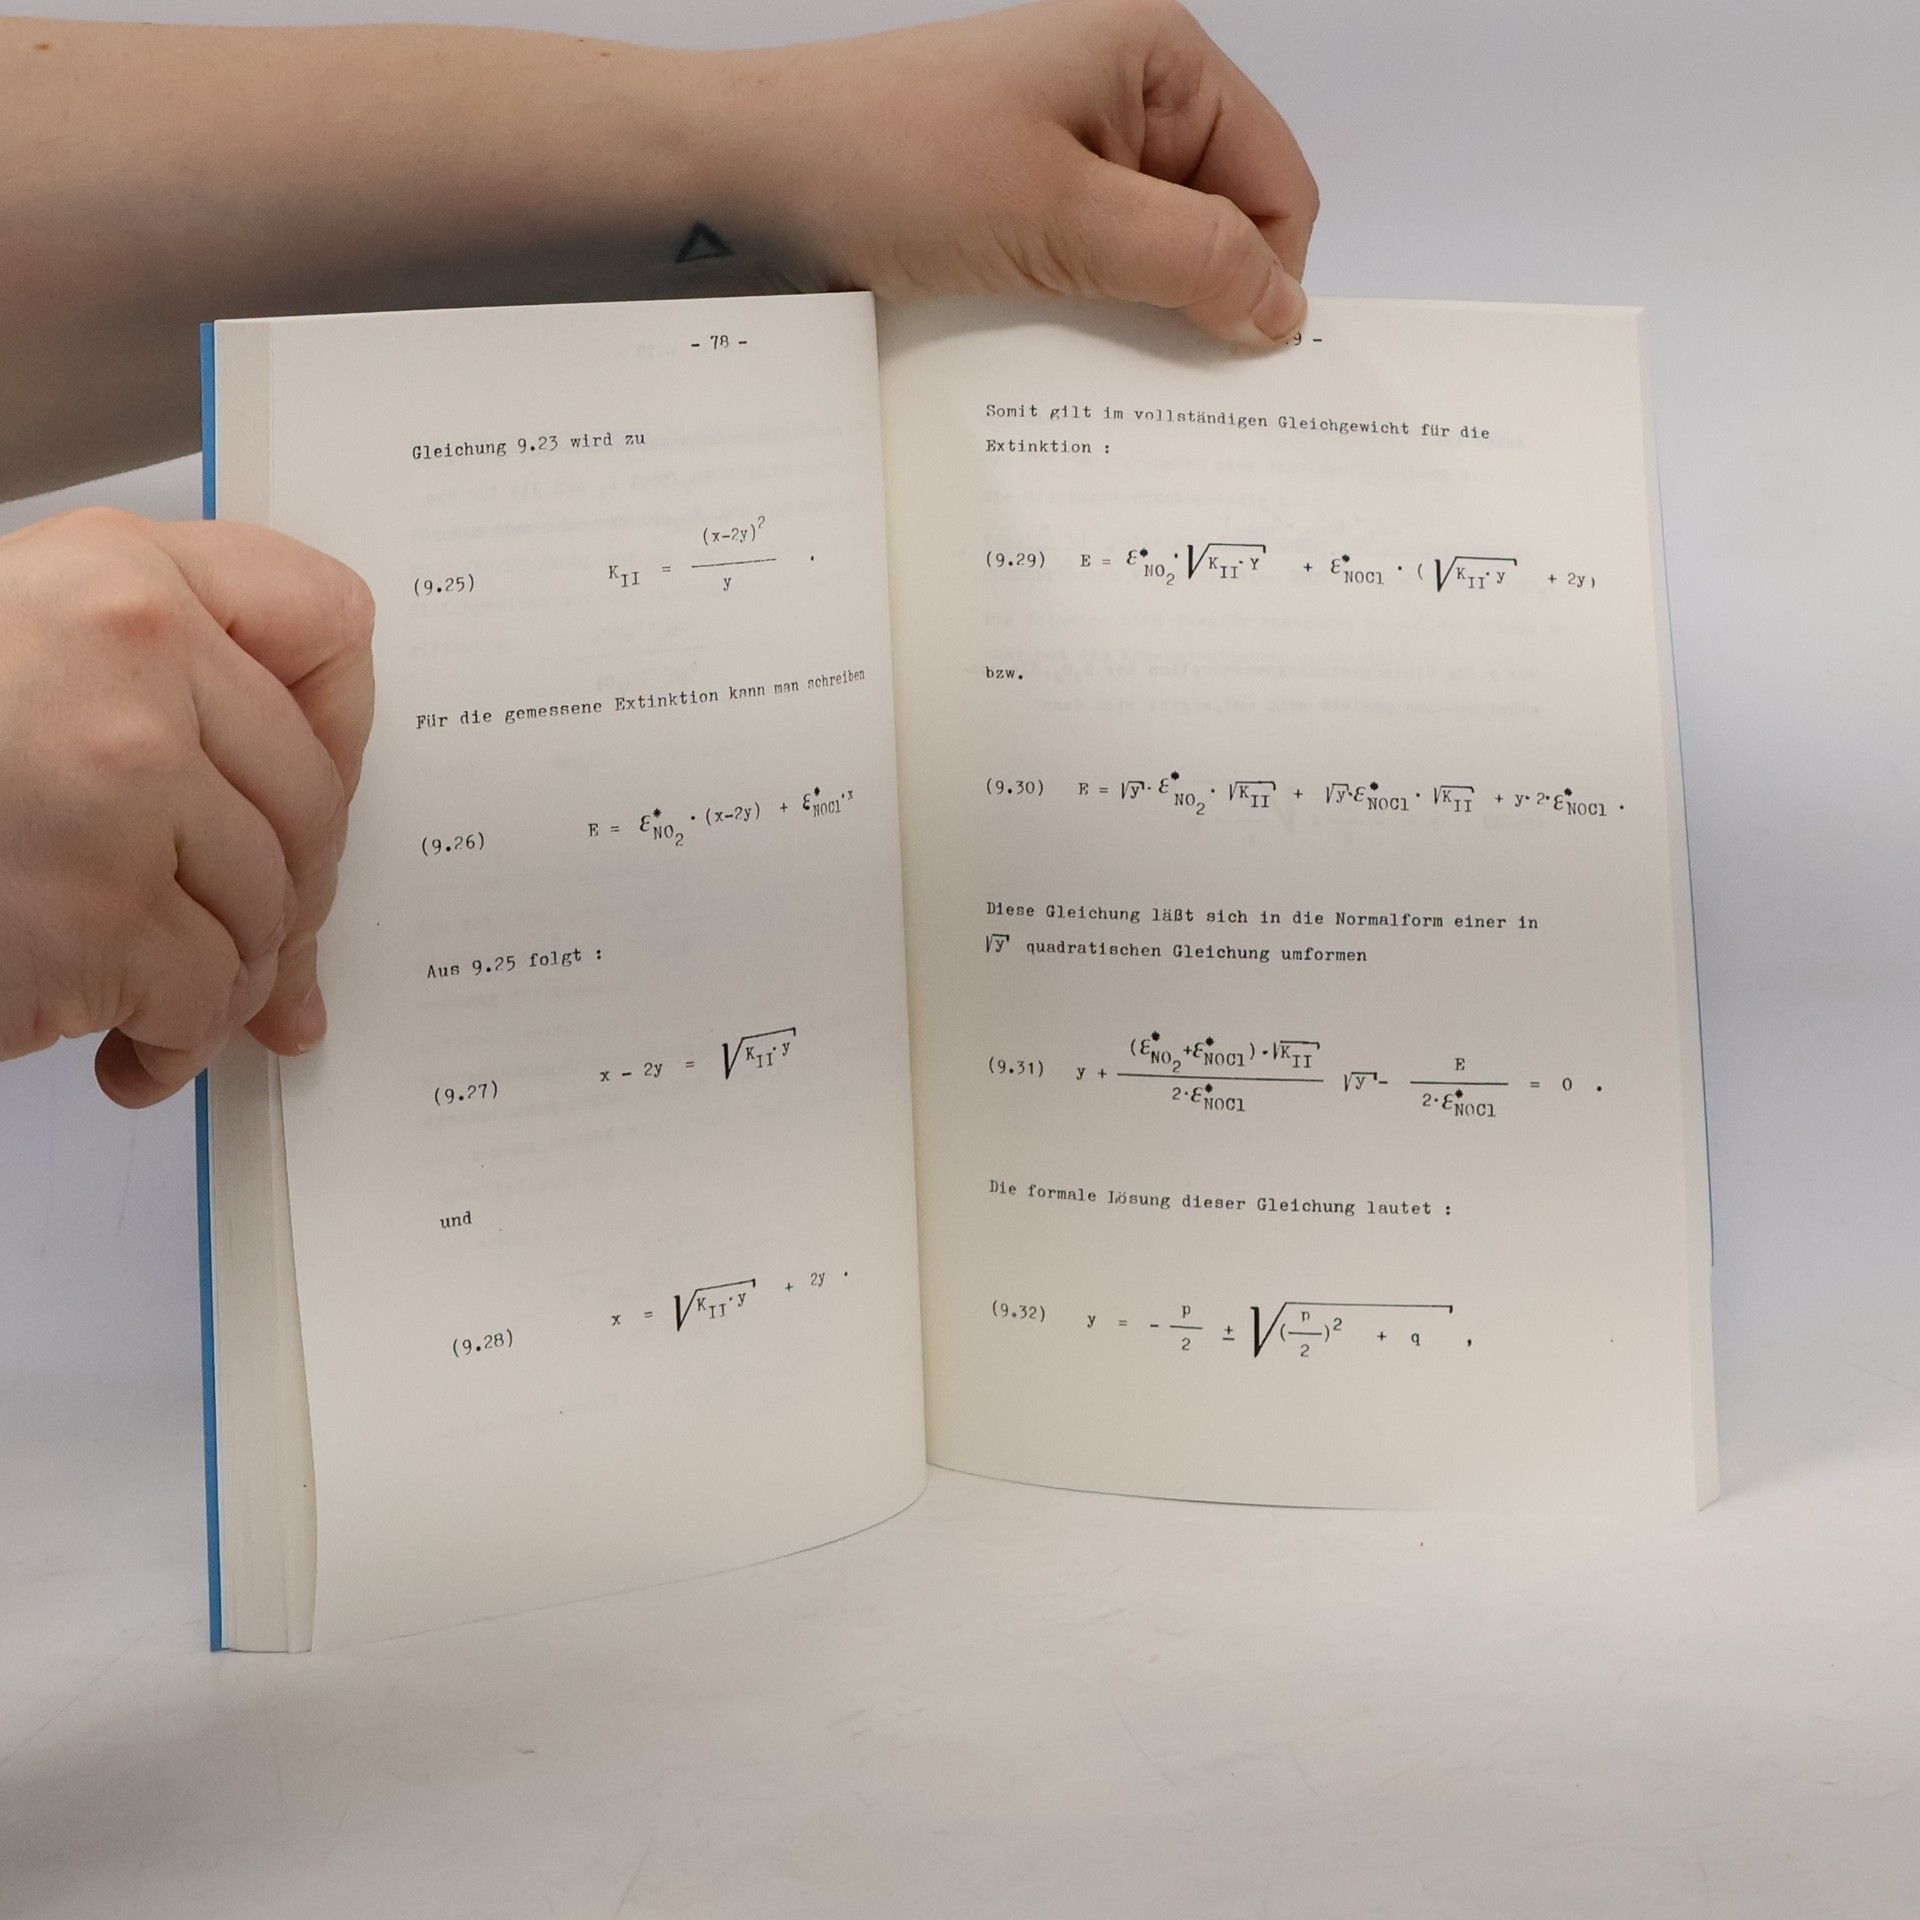 - 78 -
Gleichung 9.23 wird zu
(9.25) K_II = (x-2y)² / y .
Für die gemessene Extinktion kann man schreiben
(9.26) E = ε*_NO₂ · (x-2y) + ε*_NOCl · x
Aus 9.25 folgt :
(9.27) x - 2y = √(K_II · y)
und
(9.28) x = √(K_II · y) + 2y .
9 -
Somit gilt im vollständigen Gleichgewicht für die
Extinktion :
(9.29) E = ε*_NO₂ · √(K_II · Y) + ε*_NOCl · ( √(K_II · y) + 2y)
bzw.
(9.30) E = √y · ε*_NO₂ · √K_II + √y · ε*_NOCl · √K_II + y · 2 · ε*_NOCl .
Diese Gleichung läßt sich in die Normalform einer in
√y quadratischen Gleichung umformen
(9.31) y + (ε*_NO₂ + ε*_NOCl) · √K_II / 2·ε*_NOCl √y - E / 2·ε*_NOCl = 0 .
Die formale Lösung dieser Gleichung lautet :
(9.32) y = - p/2 ± √((p/2)² + q) ,